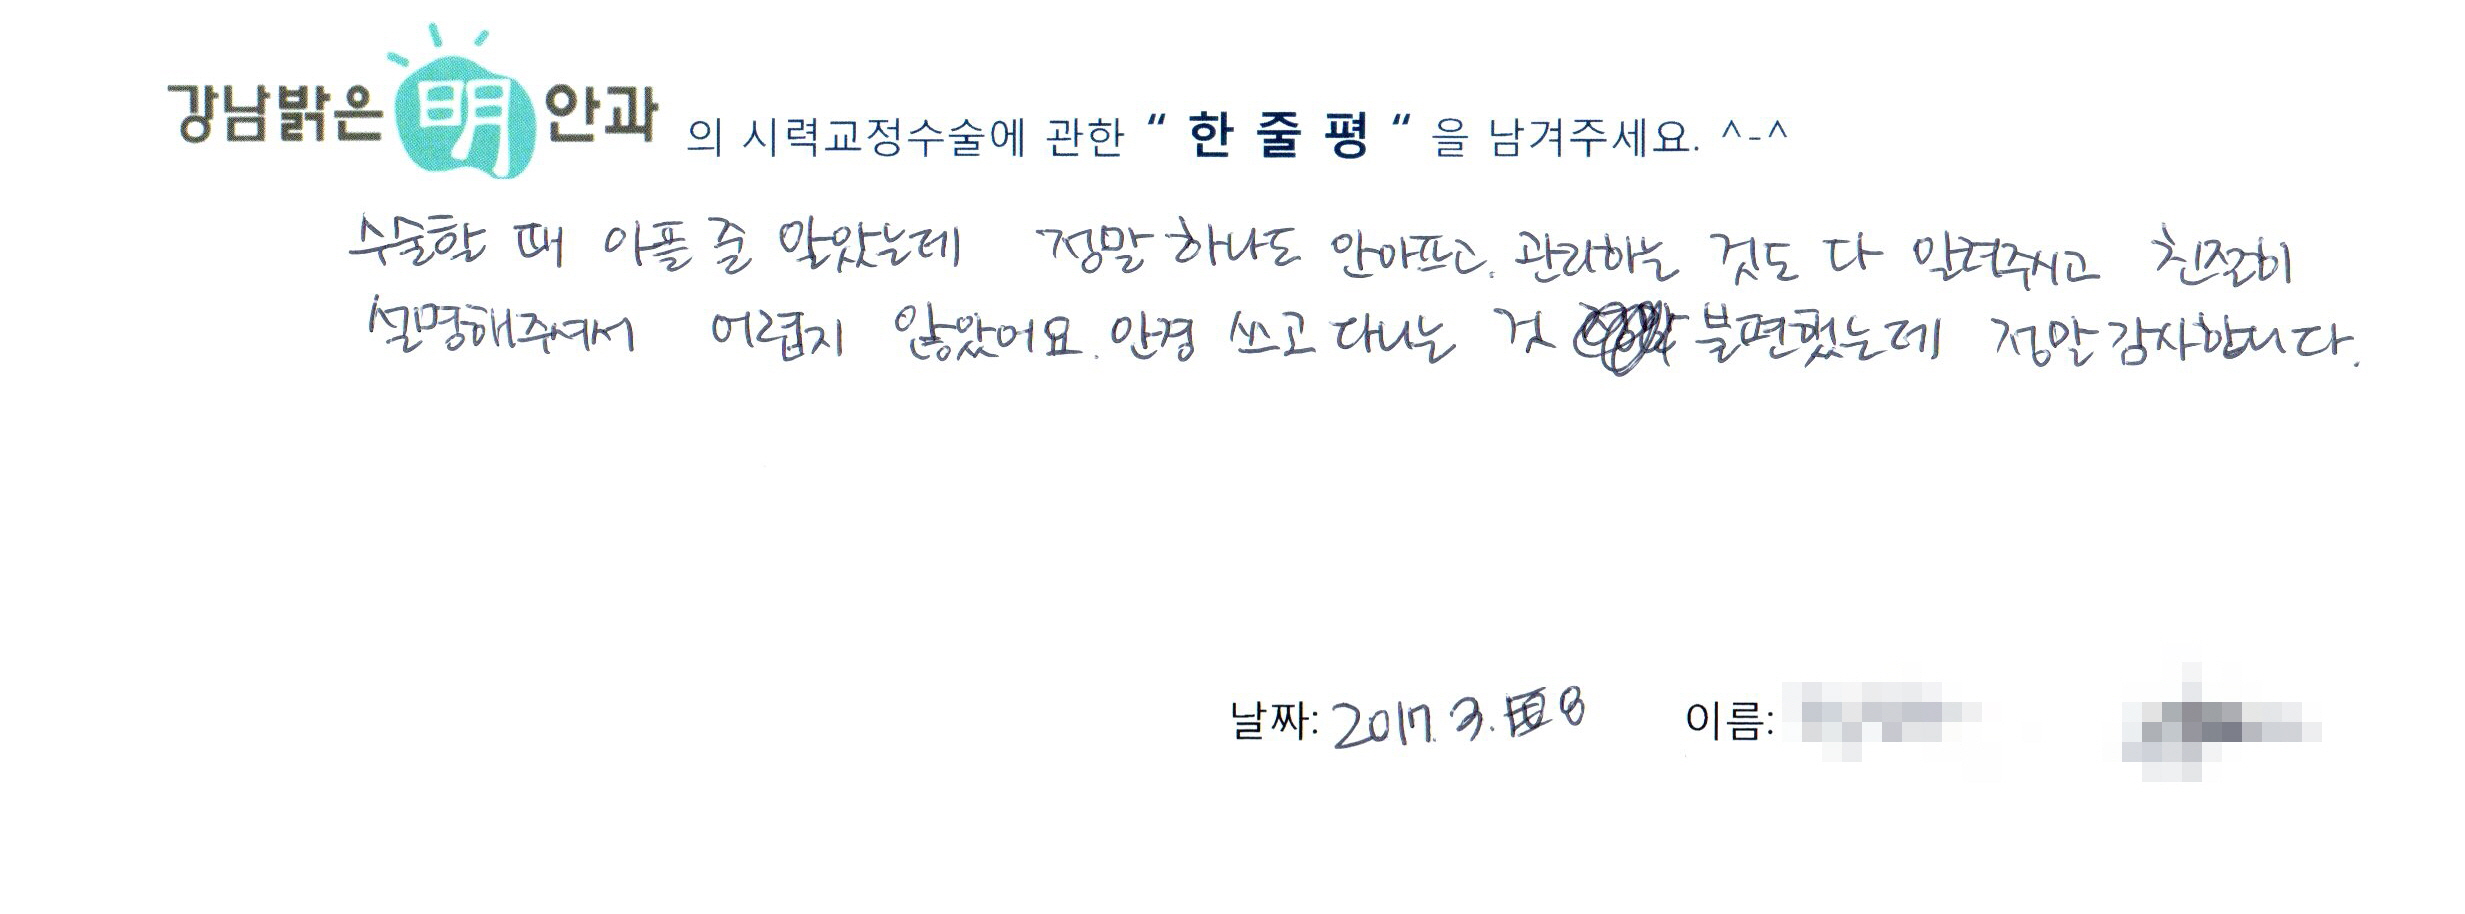 강남밝은明안과 의 시력교정수술에 관한 “ 한 줄 평 “ 을 남겨주세요. ^-^
수술할 때 아플 줄 알았는데 정말 하나도 안아프고. 관리하는 것도 다 알려주시고 친절히
설명해주셔서 어렵지 않았어요. 안경 쓰고 다니는 것 불편했는데 정말 감사합니다.
날짜: 2017. 3. 8 이름: